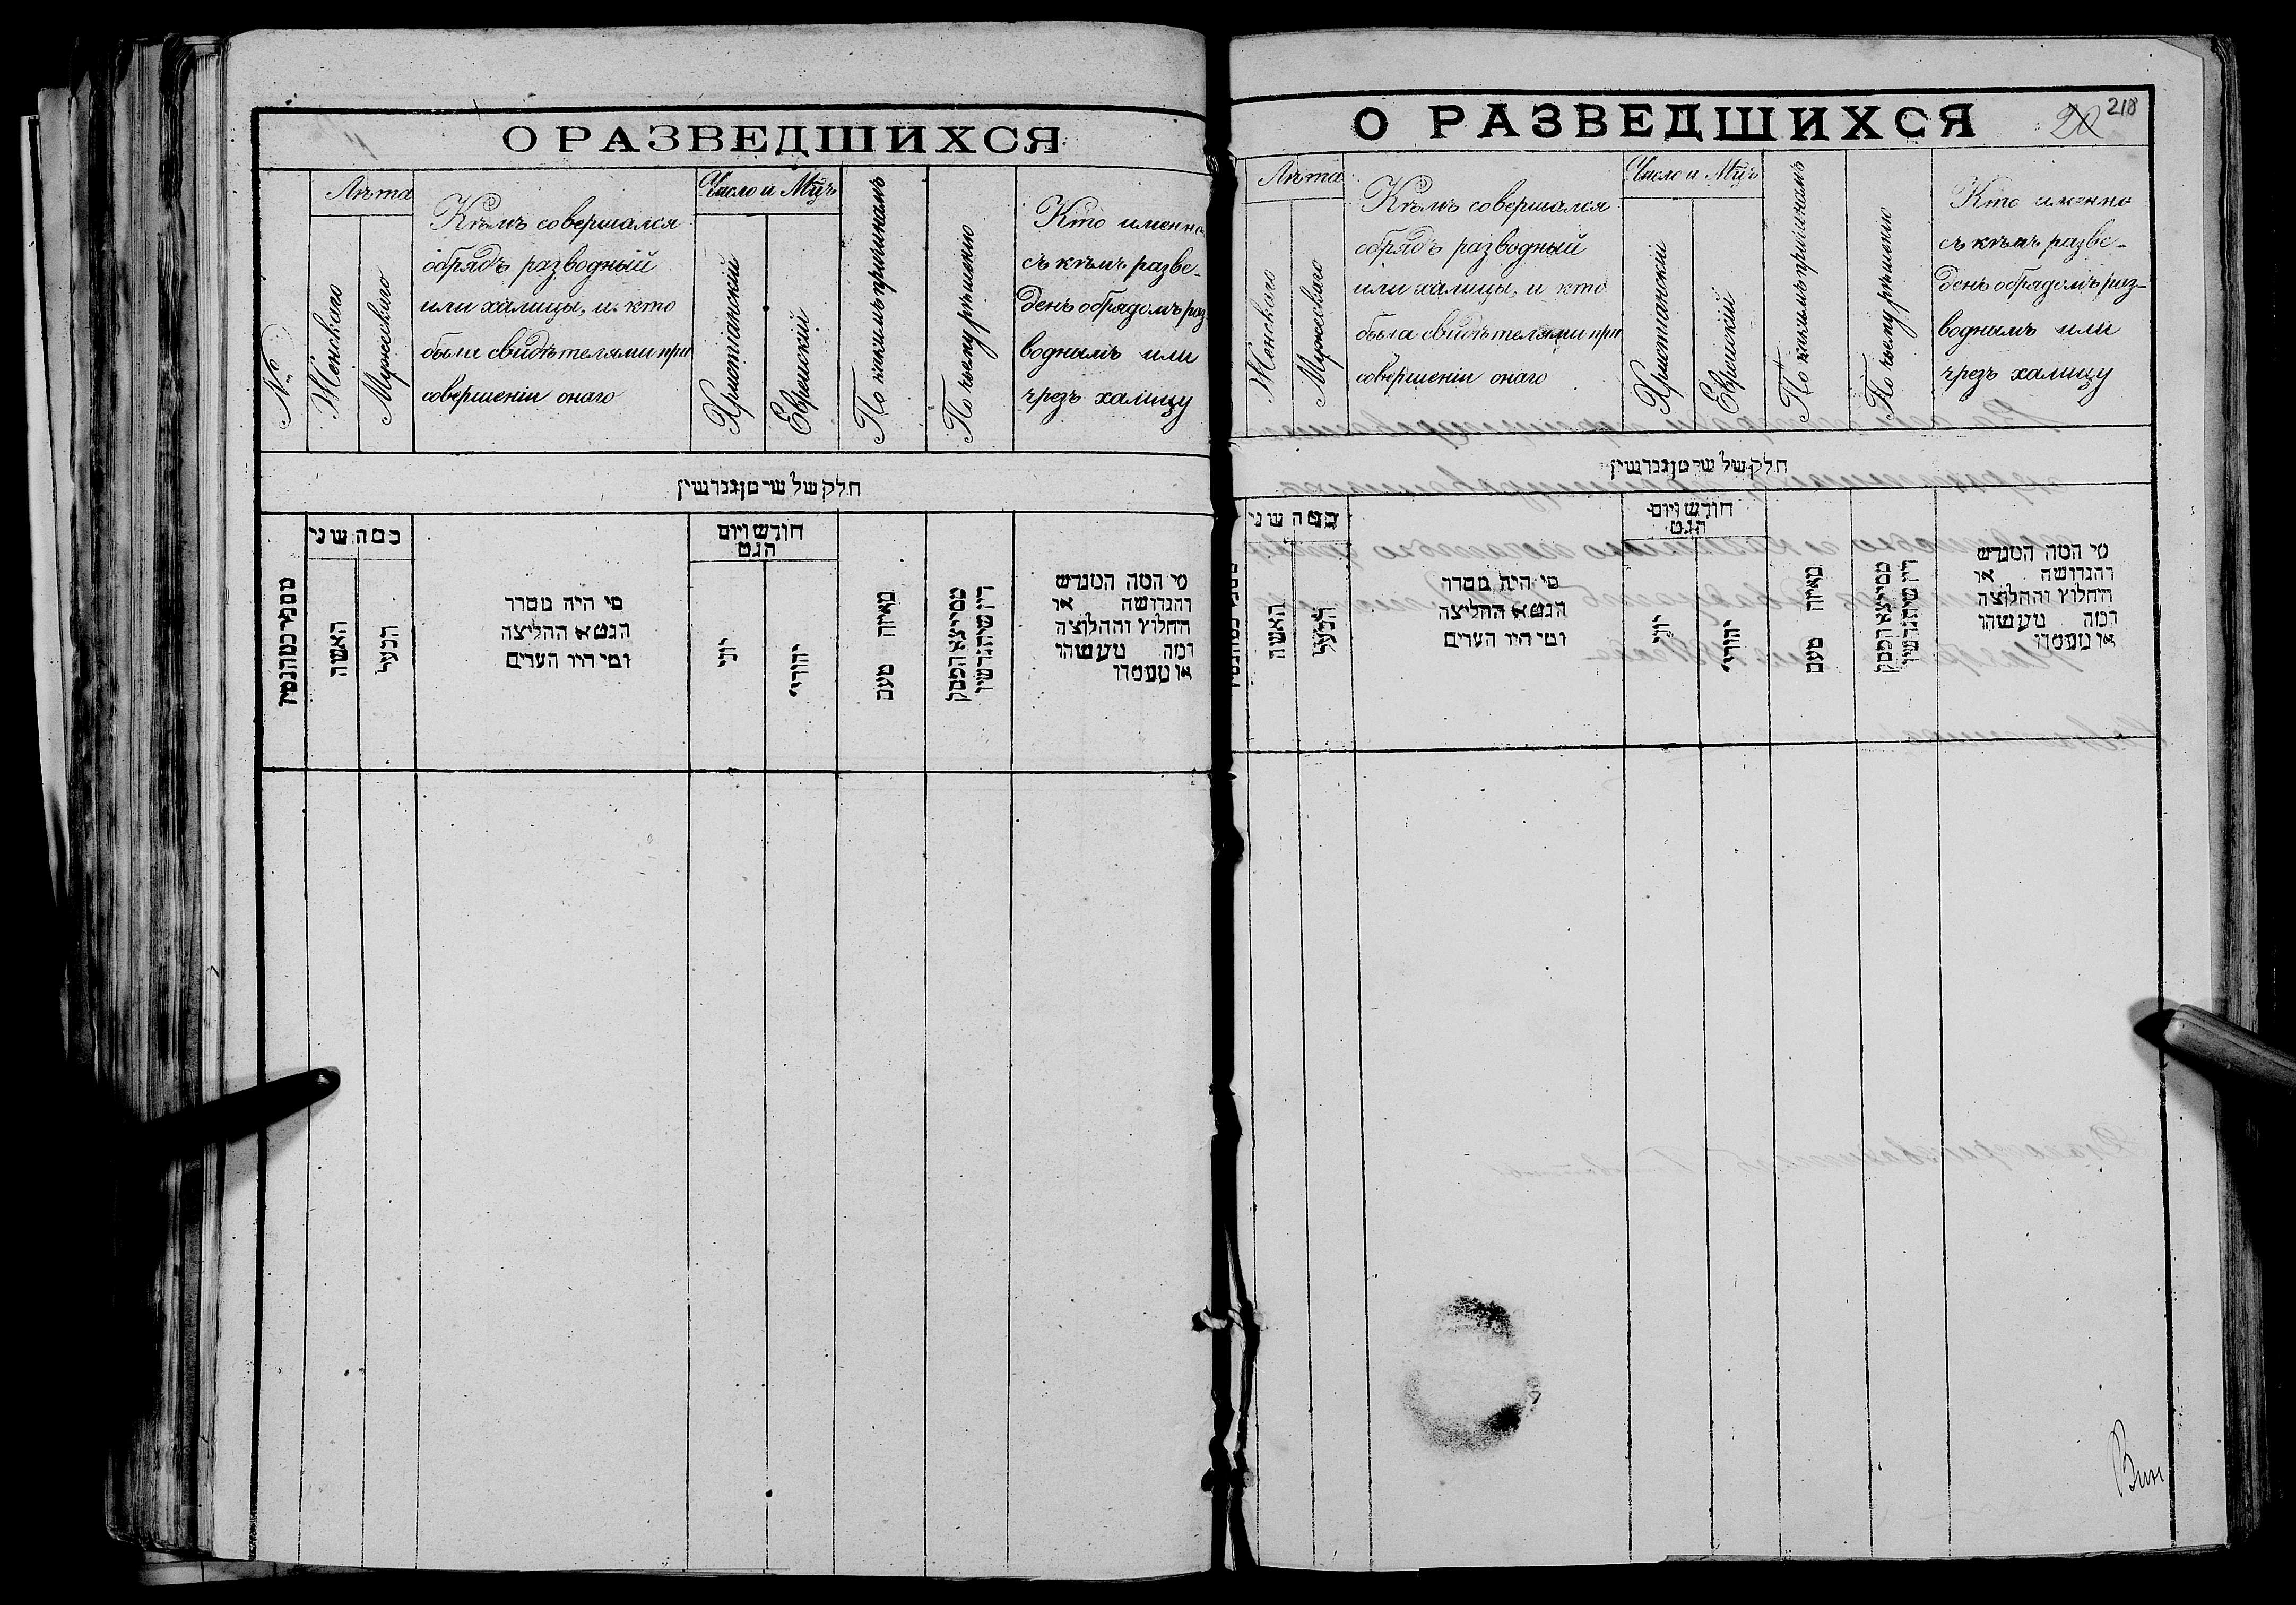 О РАЗВЕДШИХСЯ
№
Лѣта
Женскаго
Мужескаго
Кѣмъ совершался
обрядъ разводный
или халицы, и кто
были свидѣтелями при
совершеніи онаго
Число и Мцъ
Христіанскій
Еврейскій
По какимъ причинамъ
По чьему рѣшенію
Кто именно
съ кѣмъ разве-
денъ обрядомъ раз
воднымъ или
чрезъ халицу
חלק של
כמה שני
האשה
הבעל
מי היה מסדר
הגט או החליצה
ומי היו העדים
חודש ויום
הגט
יוני
יהודי
מאיזה טעם
מי המה המגרש
והגרושה או
החלוץ והחלוצה
ומה מעשהו
או מעמדו
О РАЗВЕДШИХСЯ
20 218
Лѣта
Женскаго
Мужескаго
Кѣмъ совершался
обрядъ разводный
или халицы, и кто
были свидѣтелями при
совершеніи онаго
Число и Мцъ
Христіанскій
Еврейскій
По какимъ причинамъ
По чьему рѣшенію
Кто именно
съ кѣмъ разве-
денъ обрядомъ раз-
воднымъ или
чрезъ халицу
חלק של
כמה שני
האשה
הבעל
מי היה מסדר
הגט או החליצה
ומי היו העדים
חודש ויום
הגט
יוני
יהודי
מאיזה טעם
מי המה המגרש
והגרושה או
החלוץ והחלוצה
ומה מעשהו
או מעמדו
Вин